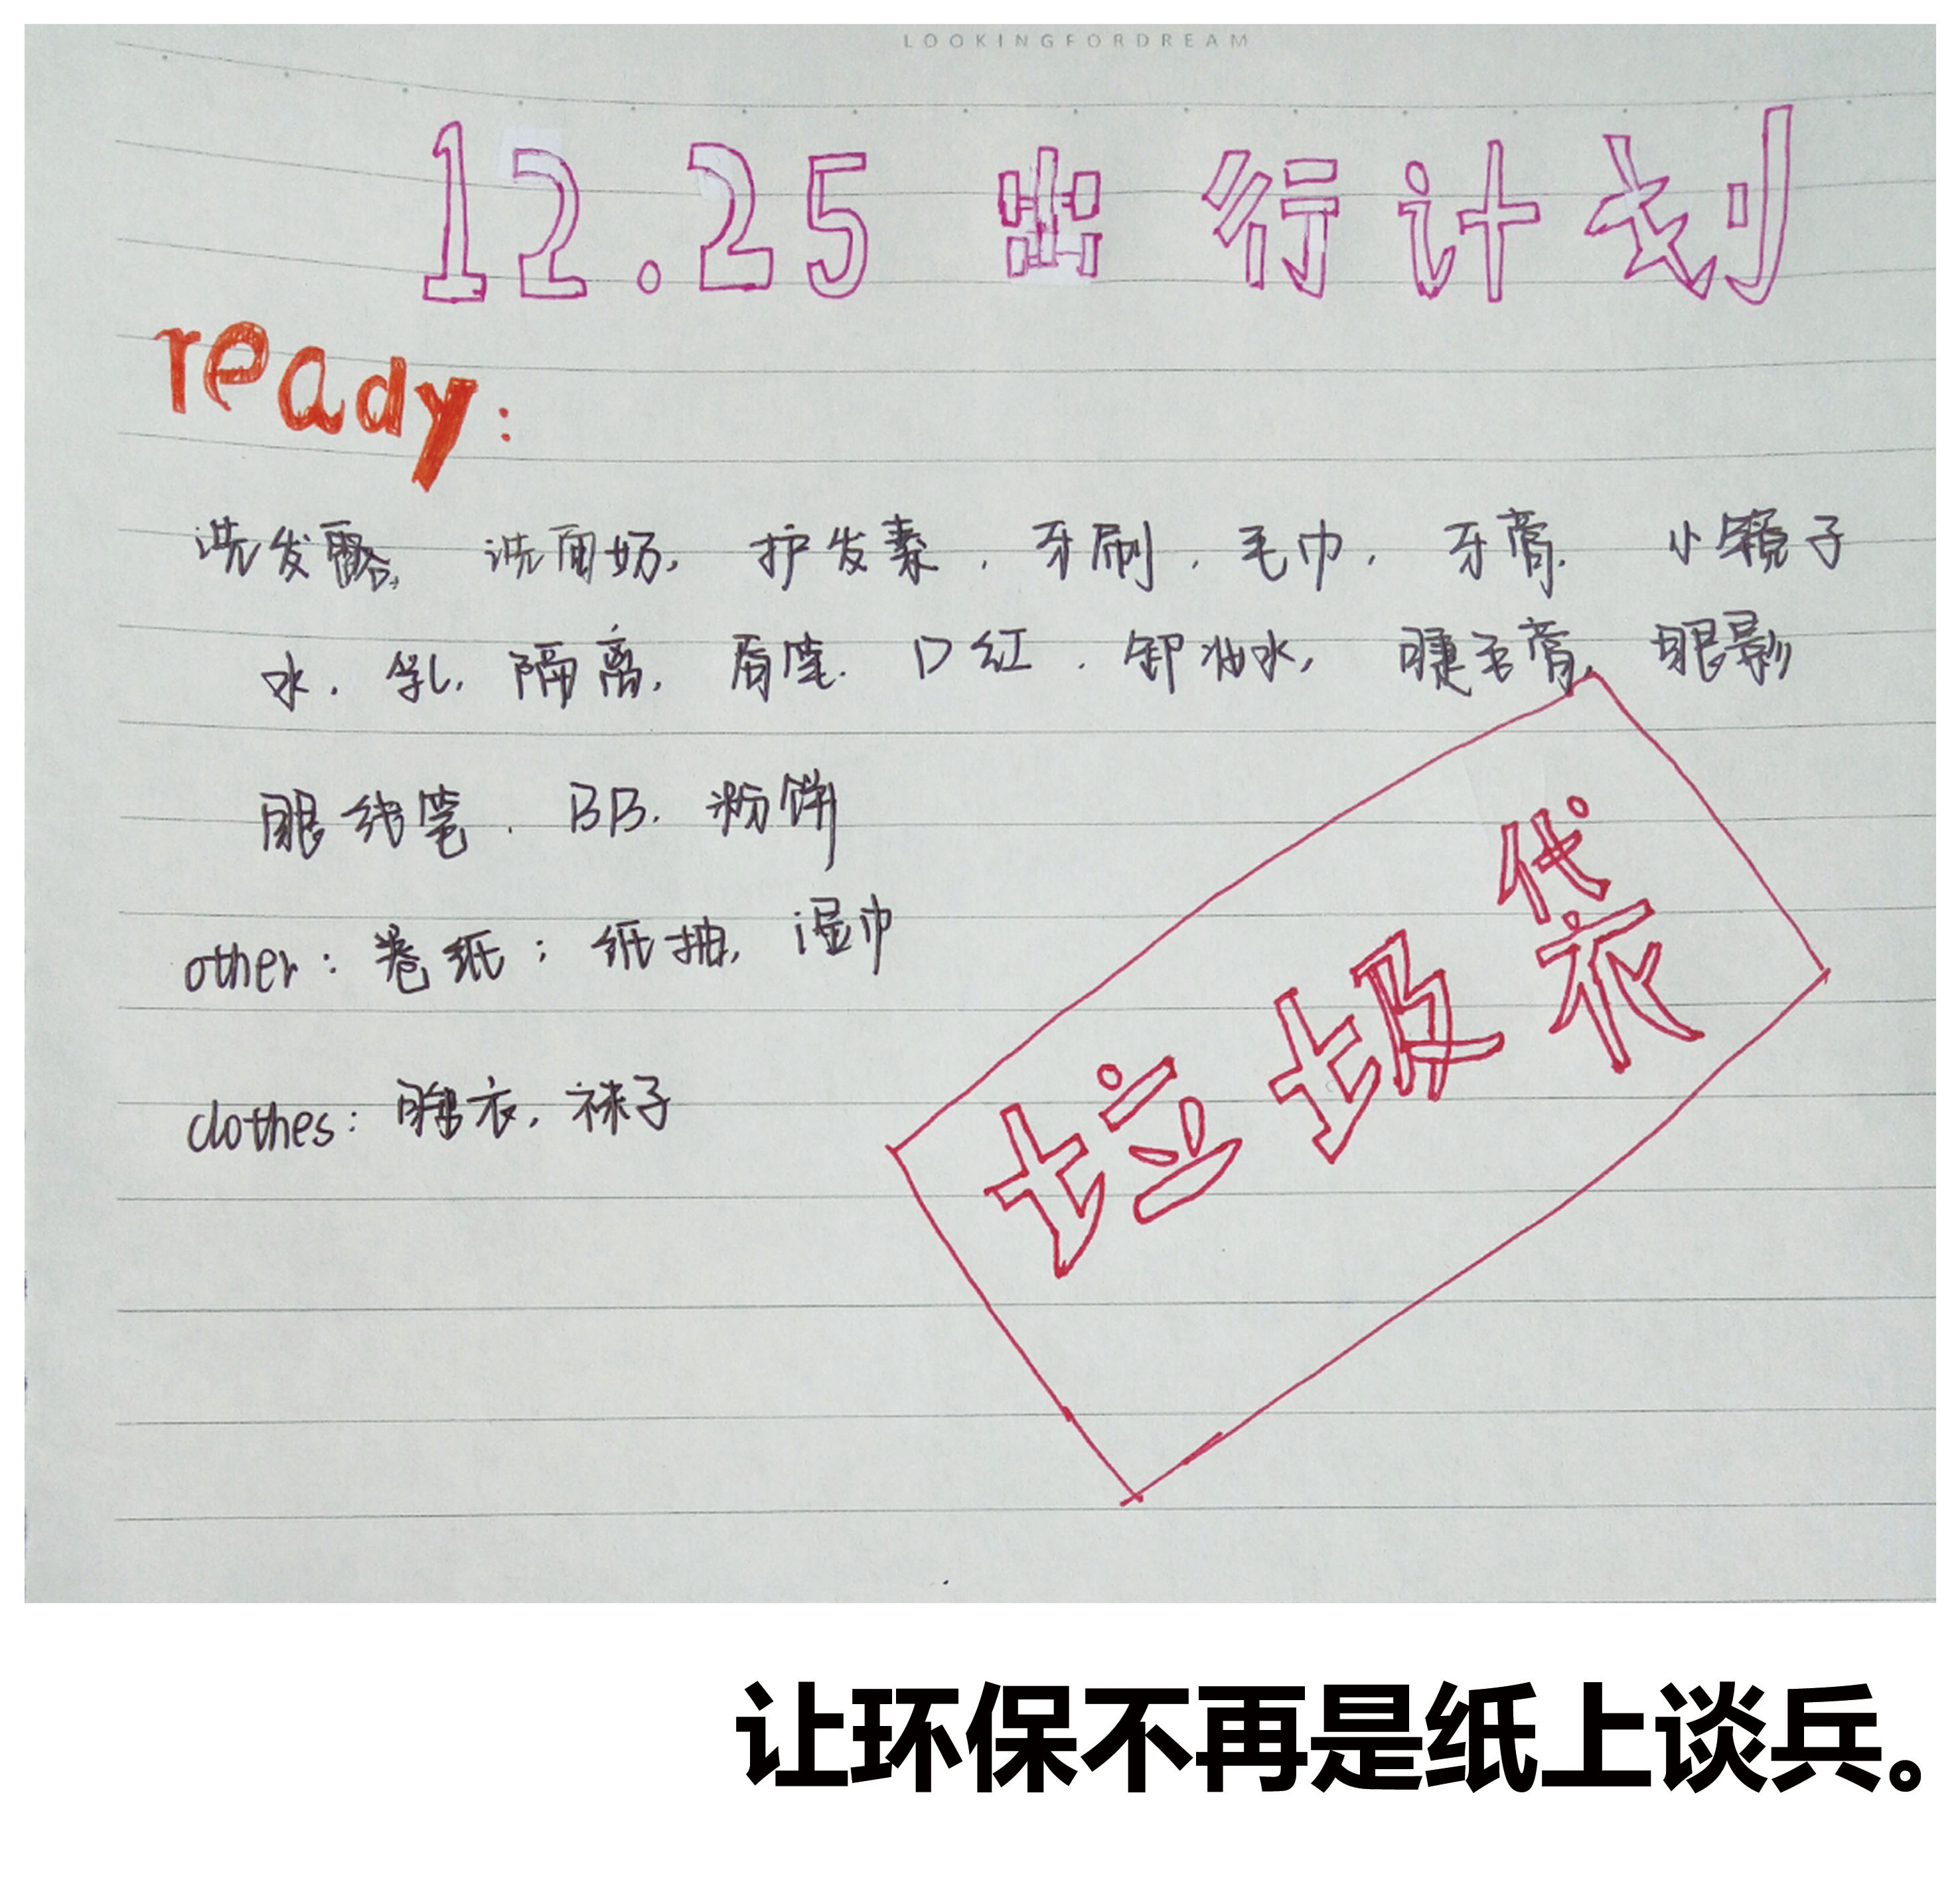 LOOKINGFORDREAM
12.25 出行计划
ready:
洗发露, 洗面奶, 护发素, 牙刷, 毛巾, 牙膏. 小镜子
水, 乳, 隔离, 眉笔. 口红, 卸妆水, 睫毛膏, 眼影
眼线笔, BB, 粉饼
other: 卷纸; 纸抽, 湿巾
clothes: 睡衣, 袜子
垃圾袋
让环保不再是纸上谈兵。